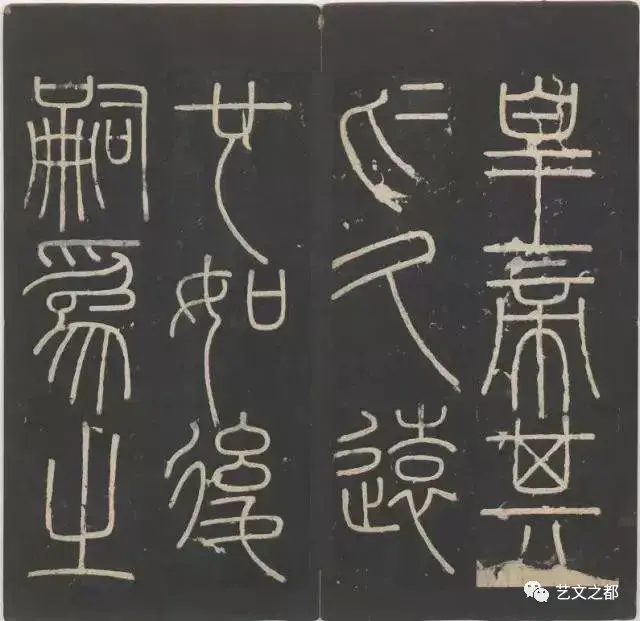 皇帝其
於久遠
也如後
嗣為之
艺文之都